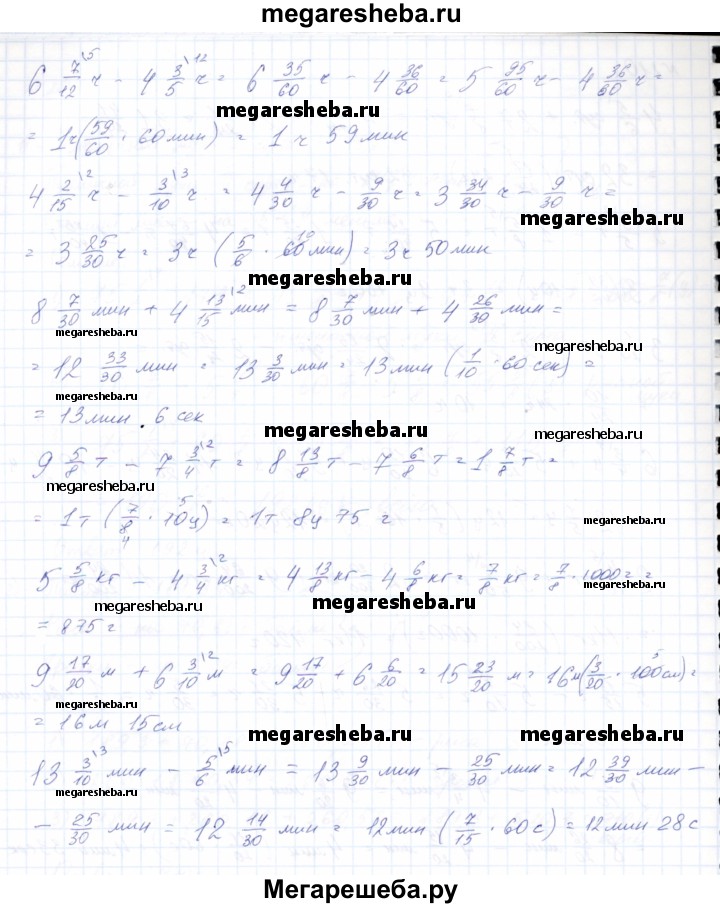 megaresheba.ru
6 7/12\5 ч - 4 3/5\12 ч = 6 35/60 ч - 4 36/60 = 5 95/60 ч - 4 36/60 ч =
megaresheba.ru
= 1ч (59/60 · 60 мин) = 1 ч 59 мин
4 2/15\2 ч - 3/10\3 ч = 4 4/30 ч - 9/30 ч = 3 34/30 ч - 9/30 ч =
megaresheba.ru
= 3 25/30 ч = 3ч (5/6 · 60 мин) = 3ч 50 мин
megaresheba.ru
8 7/30 мин + 4 13/15\2 мин = 8 7/30 мин + 4 26/30 мин =
megaresheba.ru
megaresheba.ru
= 12 33/30 мин = 13 3/30 мин = 13 мин (1/10 · 60 сек) =
= 13 мин 6 сек
megaresheba.ru
9 5/8 т - 7 3/4\2 т = 8 13/8 т - 7 6/8 т = 1 7/8 т =
megaresheba.ru
= 1т (7/8 · 10ц) = 1т 8ц 75 г
megaresheba.ru
5 5/8 кг - 4 3/4\2 кг = 4 13/8 кг - 4 6/8 кг = 7/8 кг = 7/8 · 1000 г =
megaresheba.ru megaresheba.ru
= 875 г
megaresheba.ru
9 17/20 м + 6 3/10\2 м = 9 17/20 + 6 6/20 = 15 23/20 м = 16 м (3/20 · 100 см) =
megaresheba.ru
= 16 м 15 см
megaresheba.ru megaresheba.ru
13 3/10\3 мин - 5/6\5 мин = 13 9/30 мин - 25/30 мин = 12 39/30 мин -
megaresheba.ru
- 25/30 мин = 12 14/30 мин = 12 мин (7/15 · 60 с) = 12 мин 28 с
Мегарешеба.ру